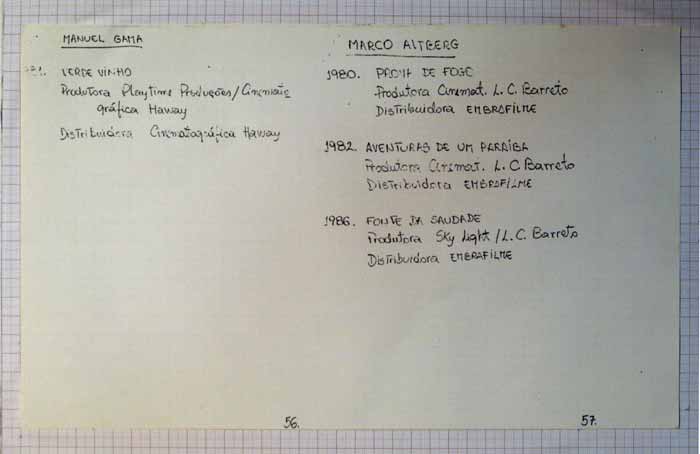 MANUEL GAMA
81. VERDE VINHO
Produtora Playtime Produções/Cinemato
gráfica Haway
Distribuidora Cinematográfica Haway
56.
MARCO ALTBERG
1980. PROVA DE FOGO
Produtora Cinemat. L.C. Barreto
Distribuidora EMBRAFILME
1982. AVENTURAS DE UM PARAÍBA
Produtora Cinemat. L.C Barreto
Distribuidora EMBRAFILME
1986. FONTE DA SAUDADE
Produtora Sky Light/L.C. Barreto
Distribuidora EMBRAFILME
57.